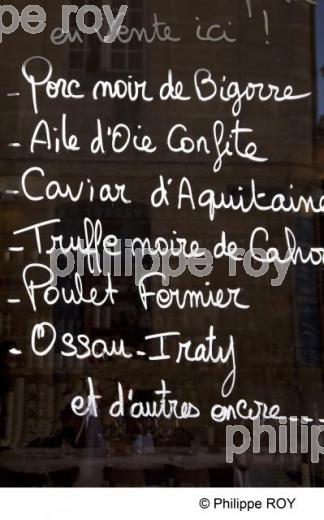 philippe roy
en vente ici !
- Porc noir de Bigorre
- Aile d'Oie Confite
- Caviar d'Aquitaine
- Truffe noire de Caho
philippe roy
- Poulet Fermier
- Ossau-Iraty
et d'autres encore....
philip
© Philippe ROY